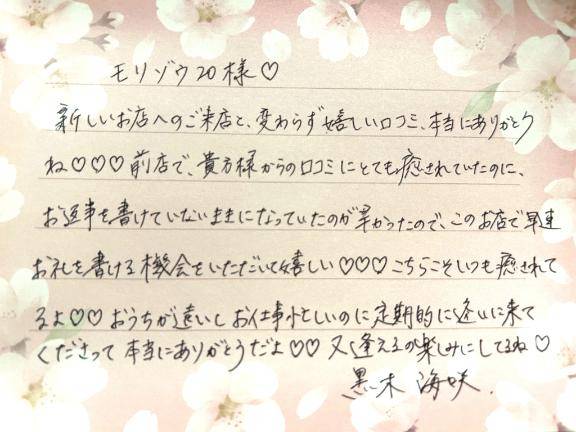 モリゾウ20様♡
新しいお店へのご来店と、変わらず嬉しい口コミ、本当にありがとう
ね♡♡♡前店で、貴方様からの口コミにとても癒されていたのに、
お返事を書けていないままになっていたのが辛かったので、このお店で早速
お礼を書ける機会をいただいて嬉しい♡♡♡こちらこそいつも癒されて
るよ♡♡おうちが遠いしお仕事忙しいのに定期的に逢いに来て
くださって本当にありがとうだよ♡♡又逢えるの楽しみにしてるね♡
黒木 海咲.